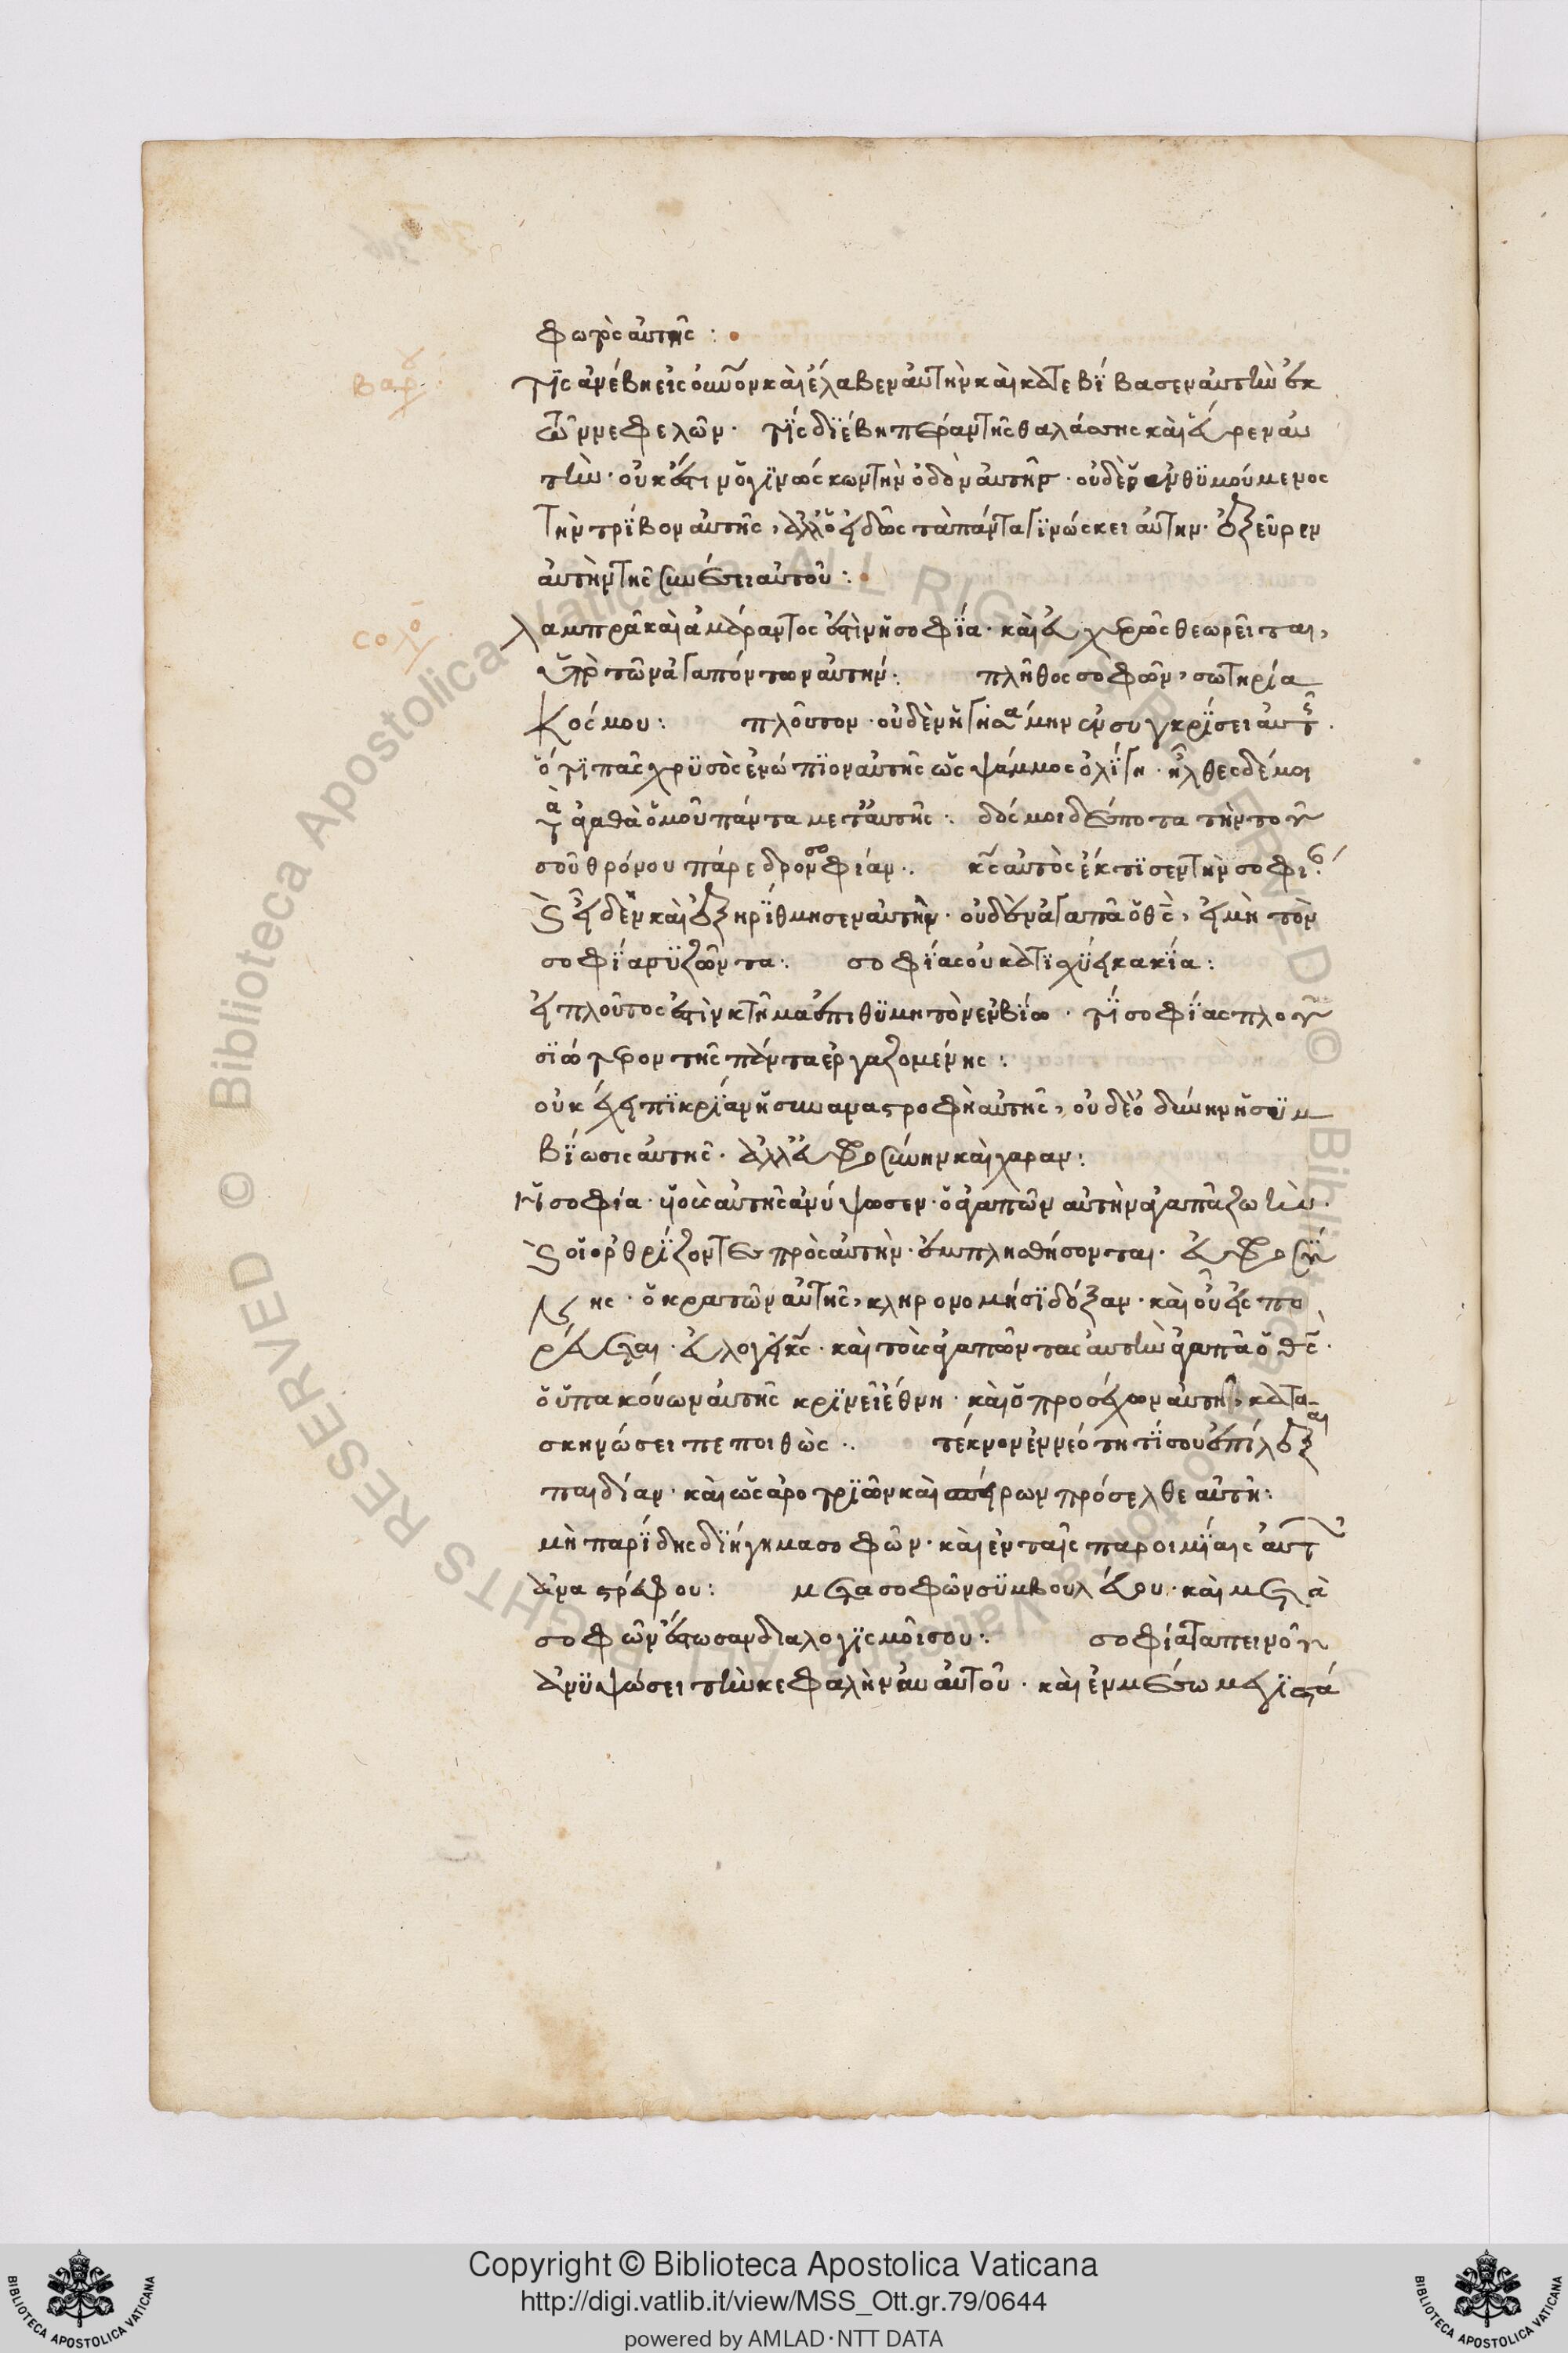 φωτὸς αὐτῆς :
Βαρούχ
τίς ἀνέβη εἰς οὐνον καὶ ἔλαβεν αὐτὴν καὶ κατεβίβασεν αὐτὴν ἐκ
τῶν νεφελῶν · τίς διέβη πέραν τῆς θαλάσσης καὶ εὗρεν αὐ
τήν · οὐκ ἔστιν ὁ γινώσκων τὴν ὁδὸν αὐτῆς · οὐδὲ ὁ ἐνθυμούμενος
τὴν τρίβον αὐτῆς, ἀλλ' ὁ εἰδὼς τὰ πάντα γινώσκει αὐτήν · ἐξεῦρεν
αὐτὴν τῇ συνέσει αὐτοῦ :
Σολο
λαμπρὰ καὶ ἀμάραντος ἐστὶν ἡ σοφία · καὶ εὐχερῶς θεωρεῖται,
ὑπὸ τῶν ἀγαπόντων αὐτήν : πλῆθος σοφῶν, σωτηρία
κόσμου : πλοῦτον · οὐδὲν ἡγησάμην ἐν συγκρίσει αὐτῆς ·
ὅτι πᾶς χρυσὸς ἐνώπιον αὐτῆς ὡς ψάμμος ὀλίγη · ἦλθες δέ μοι
τὰ ἀγαθὰ ὁμοῦ πάντα μετ' αὐτῆς : δός μοι δέσποτα τὴν τῶν
σοῦ θρόνου πάρεδρον σοφίαν : κς αὐτὸς ἔκτισεν τὴν σοφίαν
καὶ εἶδεν καὶ ἐξηρίθμησεν αὐτήν · οὐδὲν ἀγαπᾶ ὁ θς, εἰ μὴ τὸν
σοφία συζῶντα : σοφίας οὐ κατισχύει κακία :
εἰ πλοῦτος ἐστὶν κτῆμα ἐπιθυμητὸν ἐν βίω · τί σοφίας πλου
σιώτερον τῆς πάντα ἐργαζομένης :
οὐκ ἔχει πικρίαν ἡ συναναστροφὴ αὐτῆς, οὐδὲ ὀδύνην ἡ συμ
βίωσις αὐτῆς · ἀλλ' εὐφροσύνην καὶ χαραν :
ἡ σοφία · υἱοὺς αὐτῆς ἀνύψωσεν · ὁ ἀγαπῶν αὐτὴν ἀγαπᾶ ζωήν ·
καὶ οἱ ὀρθρίζοντες πρὸς αὐτὴν · ἐμπλησθήσονται · εὐφροσύ
νης · ὁ κρατῶν αὐτῆς, κληρονομήσι δόξαν · καὶ οὗ εἰσπο
ρεύεται · εὐλογεῖ κς · καὶ τοὺς ἀγαπῶντας αὐτὴν ἀγαπᾶ ὁ θς ·
ὁ ὑπακούων αὐτῆς κρινεῖ ἔθνη · καὶ ὁ προσέχων αὐτῆ, κατα-
σκηνώσει πεποιθὼς : τέκνον ἐν νεότητί σου ἐπίλεξαι
παιδίαν · καὶ ὡς ἀροτριῶν καὶ σπείρων πρόσελθε αὐτῆ :
μὴ παρίδης διήγημα σοφῶν · καὶ ἐν ταῖς παροιμίαις αὐτῶν
ἀναστρέφου : μετὰ σοφῶν συμβουλεύου · καὶ μετὰ
σοφῶν ἔστωσαν διαλογισμοί σου : σοφία ταπεινοῦ
ἀνυψώσει τὴν κεφαλὴν αὐτοῦ · καὶ ἐν μέσω μεγιστά
Copyright © Biblioteca Apostolica Vaticana
http://digi.vatlib.it/view/MSS_Ott.gr.79/0644
powered by AMLAD·NTT DATA